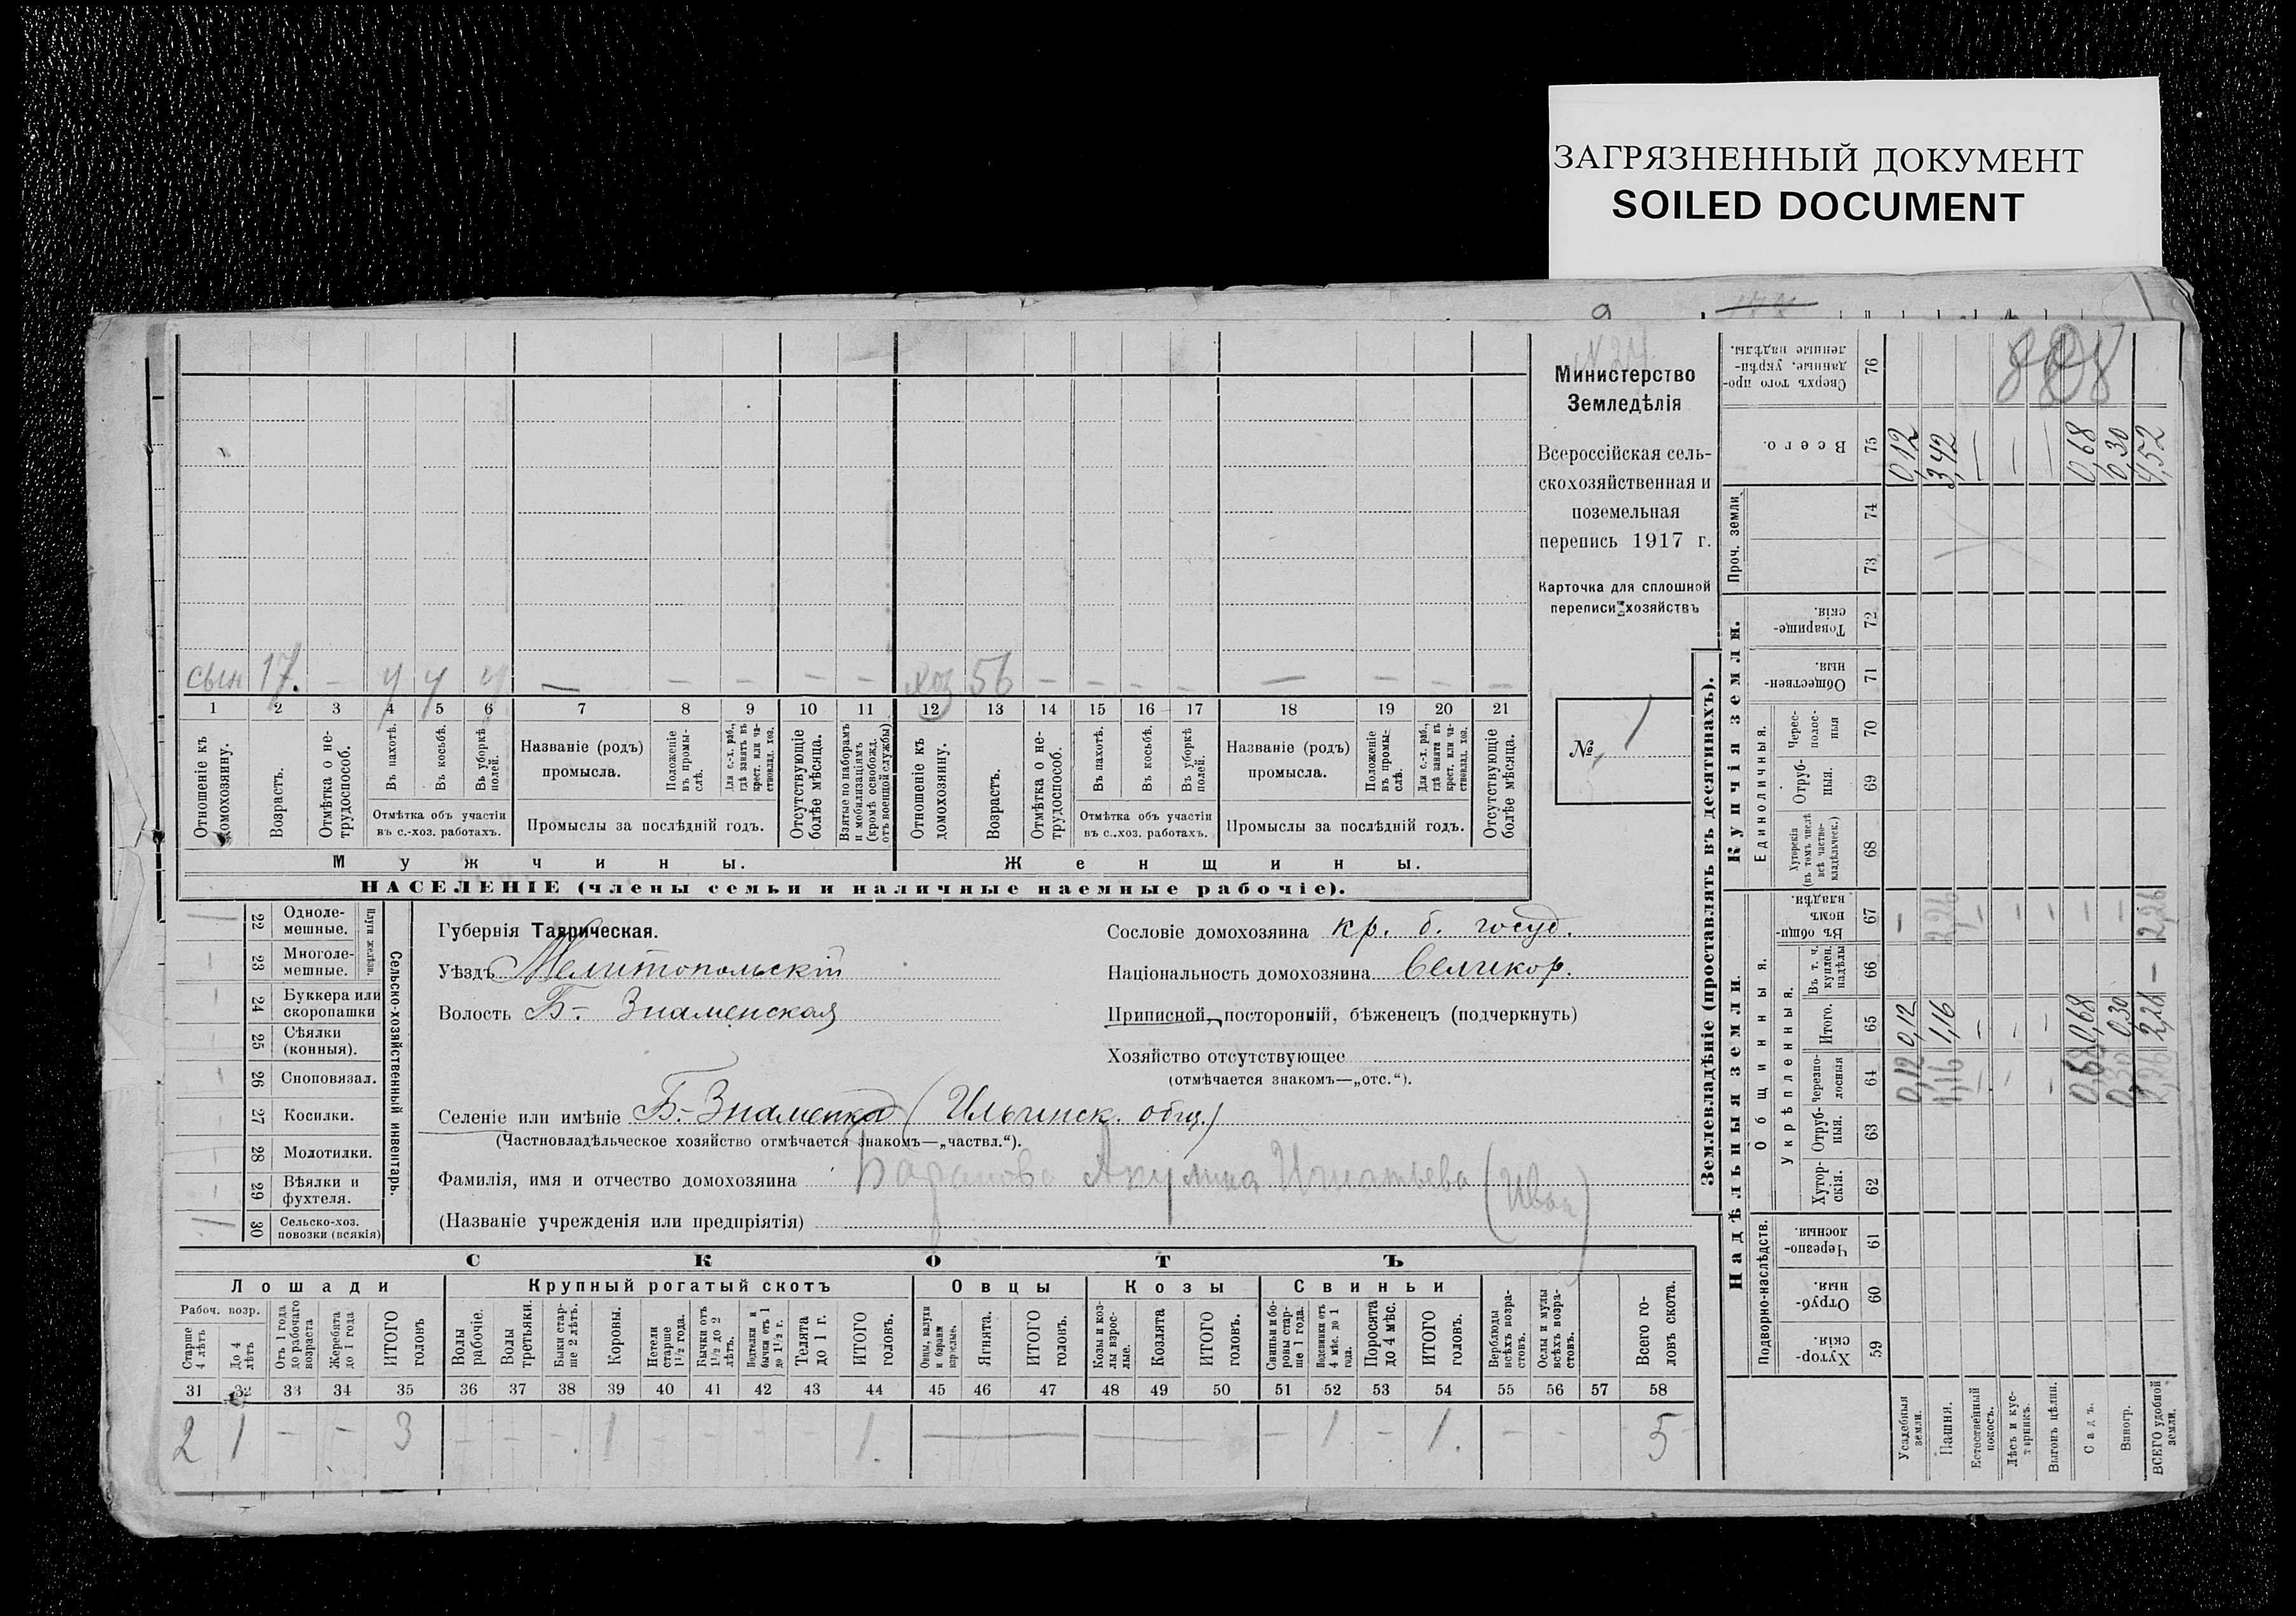 ЗАГРЯЗНЕННЫЙ ДОКУМЕНТ
SOILED DOCUMENT
Министерство
Земледѣлія
Всероссійская сель-
скохозяйственная и
поземельная
перепись 1917 г.
Карточка для сплошной
переписи хозяйствъ
№ 1
сын 17. – у у у — – – – – хоз 56 – – – – — – – –
1 2 3 4 5 6 7 8 9 10 11 12 13 14 15 16 17 18 19 20 21
Отношеніе къ домохозяину.
Возрастъ.
Отмѣтка о не-трудоспособ.
Въ пахотѣ.
Въ косьбѣ.
Въ уборкѣ полей.
Отмѣтка объ участіи
въ с.-хоз. работахъ.
Названіе (родъ)
промысла.
Положеніе въ промы-слѣ.
Для с.-х. раб., гдѣ занятъ въ крест. или ча-стновлад. хоз.
Промыслы за послѣдній годъ.
Отсутствующіе болѣе мѣсяца.
Взятые по наборамъ и мобилизаціямъ (кромѣ освобожд. отъ военной службы)
Отношеніе къ домохозяину.
Возрастъ.
Отмѣтка о не-трудоспособ.
Въ пахотѣ.
Въ косьбѣ.
Въ уборкѣ полей.
Отмѣтка объ участіи
въ с..хоз. работахъ.
Названіе (родъ)
промысла.
Положеніе въ промы-слѣ.
Для с.-х. раб., гдѣ занята въ крест. или ча-стновлад. хоз.
Промыслы за послѣдній годъ.
Отсутствующіе болѣе мѣсяца.
Мужчины.
Женщины.
НАСЕЛЕНІЕ (члены семьи и наличные наемные рабочіе).
22 Одноле-мешные.
23 Многоле-мешные.
Плуги желѣзн.
24 Буккера или скоропашки
25 Сѣялки (конныя).
26 Сноповязал.
27 Косилки.
28 Молотилки.
29 Вѣялки и фухтеля.
30 Сельско-хоз. повозки (всякія)
Сельско-хозяйственный инвентарь.
Губернія Таврическая.
Уѣздъ Мелитопольскій
Волость Б.- Знаменская
Сословіе домохозяина кр. б. госуд.
Національность домохозяина великор.
Приписной, посторонній, бѣженец (подчеркнуть)
Хозяйство отсутствующее
(отмѣчается знакомъ—„отс.“).
Селеніе или имѣніе Б.-Знаменка (Ильинск. общ.)
(Частновладѣльческое хозяйство отмѣчается знакомъ—„частвл.“).
Фамилія, имя и отчество домохозяина Баранова Акулина Игнатьева (Иван)
(Названіе учрежденія или предпріятія)
СКОТЪ
Лошади Крупный рогатый скотъ Овцы Козы Свиньи
Рабоч. возр.
Старше 4 лѣтъ
До 4 лѣтъ
Отъ 1 года до рабочаго возраста
Жеребята до 1 года
ИТОГО головъ
Волы рабочіе.
Волы третьяки.
Быки стар-ше 2 лѣтъ.
Коровы.
Нетели старше 1½ года.
Бычки отъ 1½ до 2 лѣтъ.
Подтелки и бычки отъ 1 до 1½ г.
Телята до 1 г.
ИТОГО головъ.
Овцы, валухи и бараны взрослые.
Ягнята.
ИТОГО головъ.
Козы и коз-лы взрос-лые.
Козлята
ИТОГО головъ.
Свиньи и бо-ровы стар-ше 1 года.
Подсвинки отъ 4 мѣс. до 1 года.
Поросята до 4 мѣс.
ИТОГО головъ.
Верблюды всѣхъ возра-стовъ.
Ослы и мулы всѣхъ возра-стовъ.
Всего го-ловъ скота.
31 32 33 34 35 36 37 38 39 40 41 42 43 44 45 46 47 48 49 50 51 52 53 54 55 56 57 58
2 1 – – 3 – – – 1 – – – – 1. — — – 1 – 1. – – 5
Землевладѣніе (проставлять въ десятинахъ).
Надѣльныя земли.
Купчія земли.
Проч. земли.
Подворно-наслѣдств.
Общинныя.
Укрѣпленныя.
Единоличныя.
Хутор-скія. 59
Отруб-ныя. 60
Черезпо-лосныя. 61
Хутор-скія. 62
Отруб-ныя. 63
Черезпо-лосныя 64
Итого. 65
Въ т. ч. куплен. надѣлы 66
Въ общи-номъ владѣн. 67
Хуторскія (въ томъ числѣ всѣ частно-владѣльческ.) 68
Отруб-ныя. 69
Черес-полос-ныя 70
Обществен-ныя. 71
Товарище-скія. 72
73
74
Всего. 75
Сверхъ того про-данные, укрѣп-ленные надѣлы. 76
888
Усадебныя земли. 0,12 0,12 – 0,12
Пашня. 1,16 1,16 3,42
Естественный покосъ. – – – –
Лѣсъ и кус-тарникъ. – – – –
Выгонъ цѣлин. – – – –
Садъ. 0,68 0,68 – 0,68
Виногр. 0,30 0,30 – 0,30
ВСЕГО удобной земли. 2,26 2,26 – 2,26 4,52